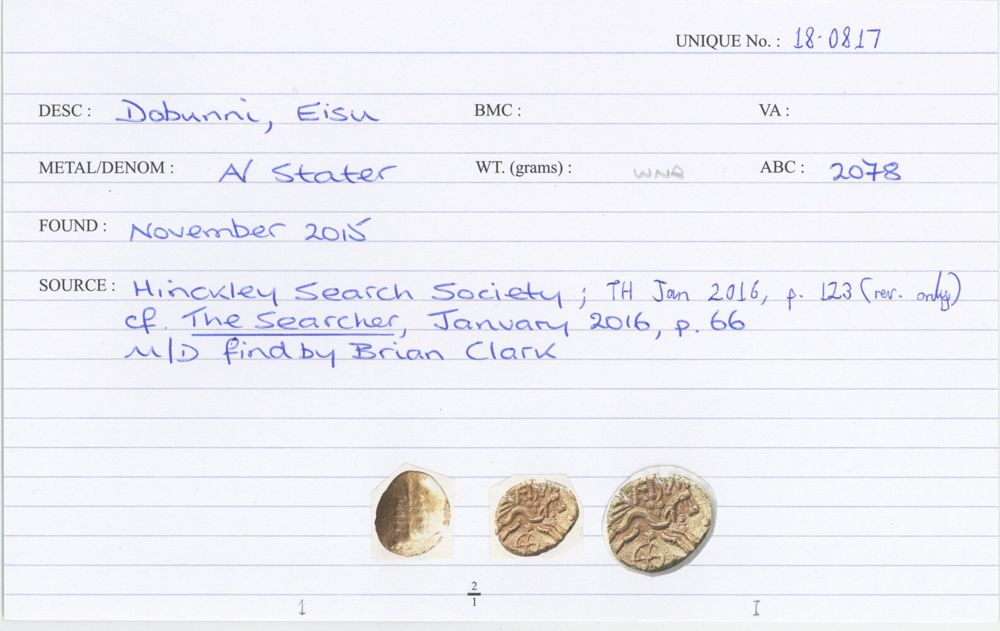 UNIQUE No. : 18·0817
DESC : Dobunni, Eisu BMC : VA :
METAL/DENOM : A/ Stater WT. (grams) : WNA ABC : 2078
FOUND : November 2015
SOURCE : Hinckley Search Society ; TH Jan 2016, p. 123 (rev. only)
cf. The Searcher, January 2016, p. 66
M/D find by Brian Clark
2
1
1 I